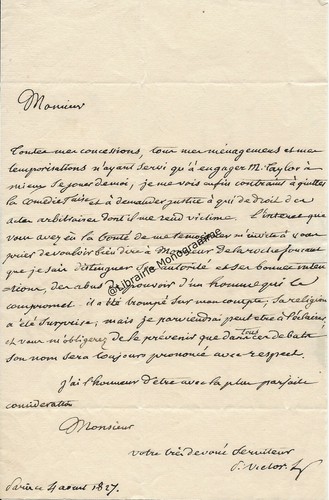 Monsieur
Toutes mes concessions, tous mes ménagemens et mes
temporisations n'ayant servi qu'à engager M. Taylor à
mieux se jouer de moi, je me vois enfin contraint à quitter
la comédie f.aise et à demander justice à qui de droit des
actes arbitraires dont il me rend victime. L'interet que
vous avez eu la bonté de me temoigner m'invite à vous
prier de vouloir bien dire à Monsieur de larochefoucaut
que je sais distinguer son autorité et ses bonnes inten
-tions, des abus de pouvoir d'un homme qui le
compromet. il a été trompé sur mon compte, sa religion
a été surprise, mais je parviendrai peut être à l'éclairer,
et vous m'obligerez de le prévenir que dans tous ces debats
son nom sera toujours prononcé avec respect.
j'ai l'honneur d'etre avec la plus parfaite
consideration
Monsieur
votre très devoué serviteur
P. Victor
Paris ce 4 aout 1827.
©Librairie Monogramme